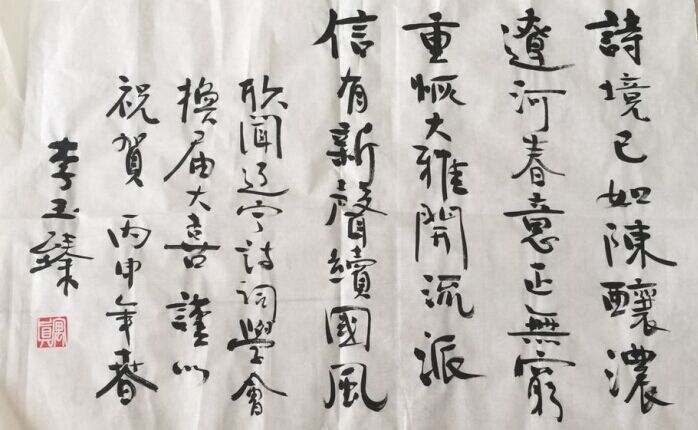 詩境已如陳釀濃
遼河春意正無窮
重恢大雅開流派
信有新聲續國風
欣聞辽宁詩詞學會
換届大喜謹以
祝賀 丙申年春
李玉臻